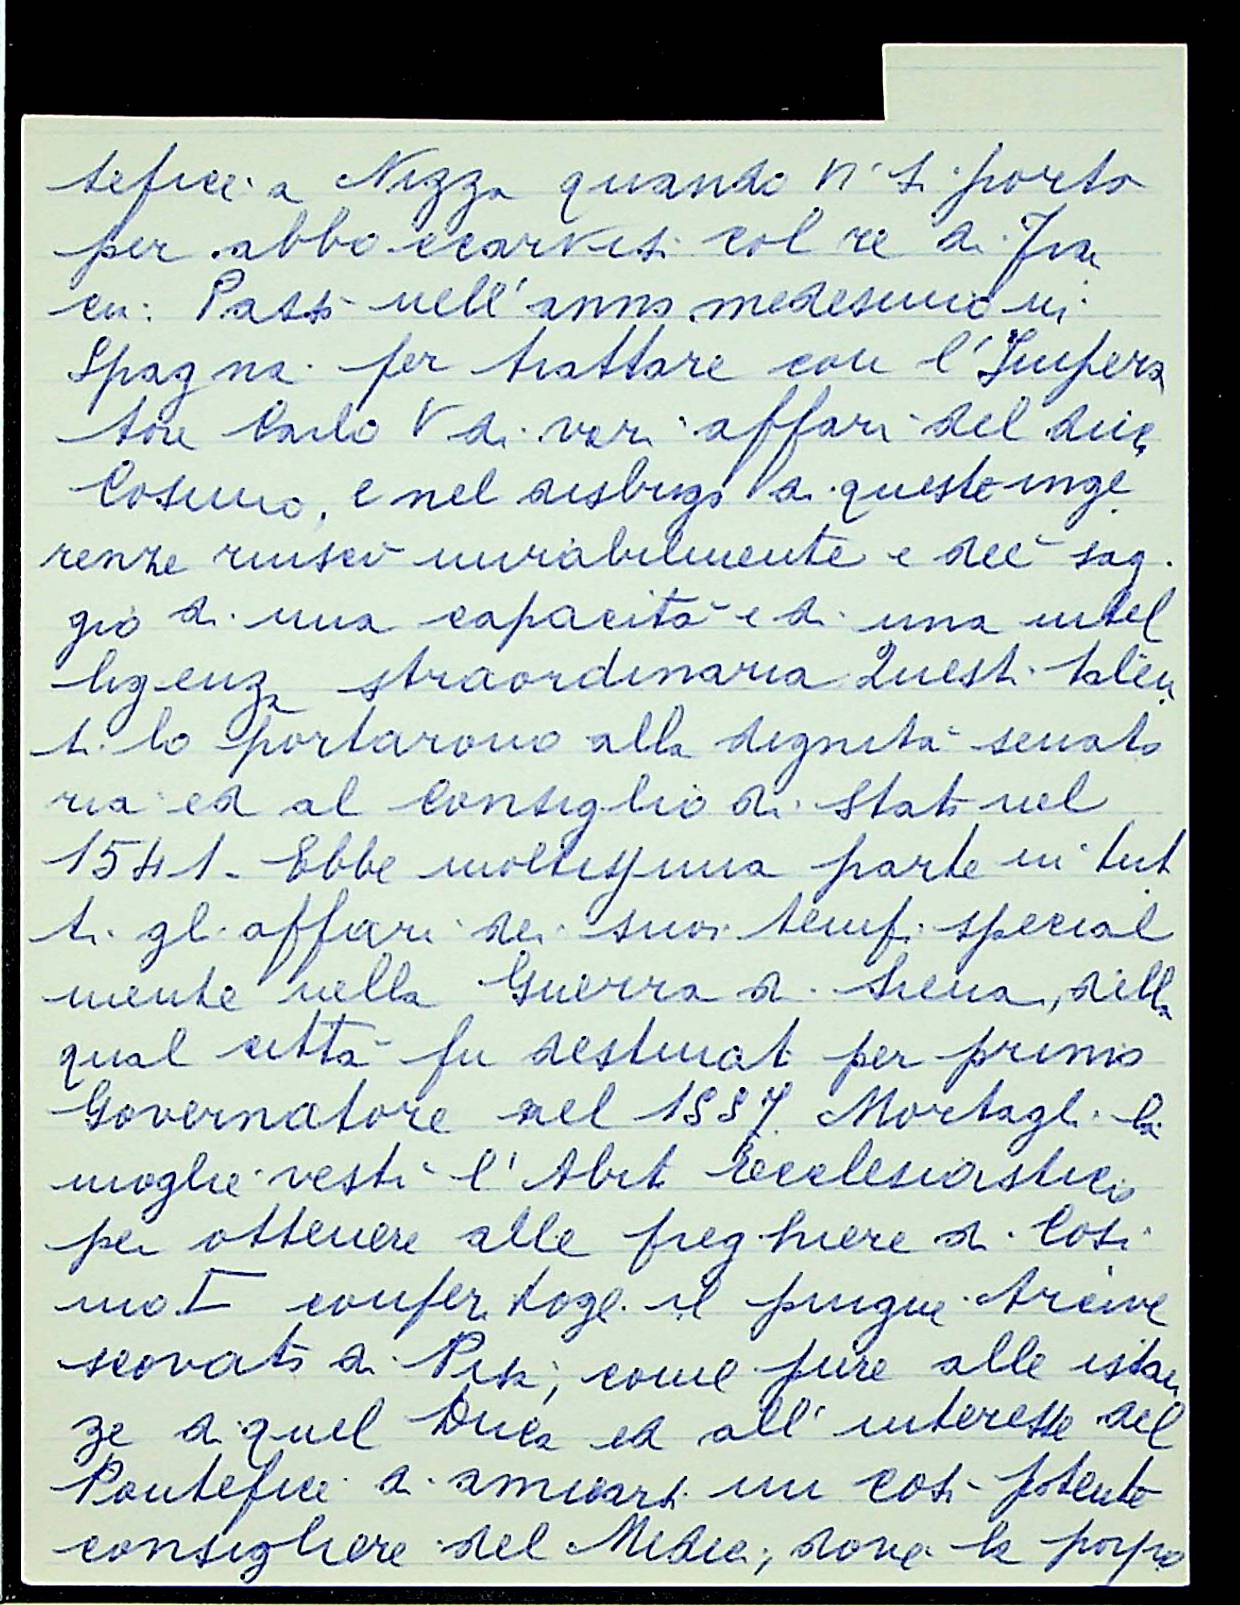 tefice a Nizza quando vi si portò
per abboccarvisi col re di Fran
cia. Passò nell'anno medesimo in
Spagna per trattare con l'Impera
tore Carlo V di vari affari del duca
Cosimo, e nel disbrigo di queste inge
renze riuscì mirabilmente e diè sag
gio di una capacità e di una intel
ligenza straordinaria Questi talen
ti lo portarono alla dignità senato
ria ed al Consiglio di Stato nel
1541. Ebbe moltissima parte in tut
ti gli affari dei suoi tempi special
mente nella Guerra di Siena, della
qual città fu destinato per primo
Governatore nel 1557. Mortagli la
moglie vestì l'Abito Ecclesiastico
per ottenere alle preghiere di Cosi
mo I conferitogli il pingue Arcive
scovato di Pisa, come pure alle istan
ze di quel Duca ed all'interesse del
Pontefice di amicarsi un così potente
consigliere del Medici, dovè la porpo